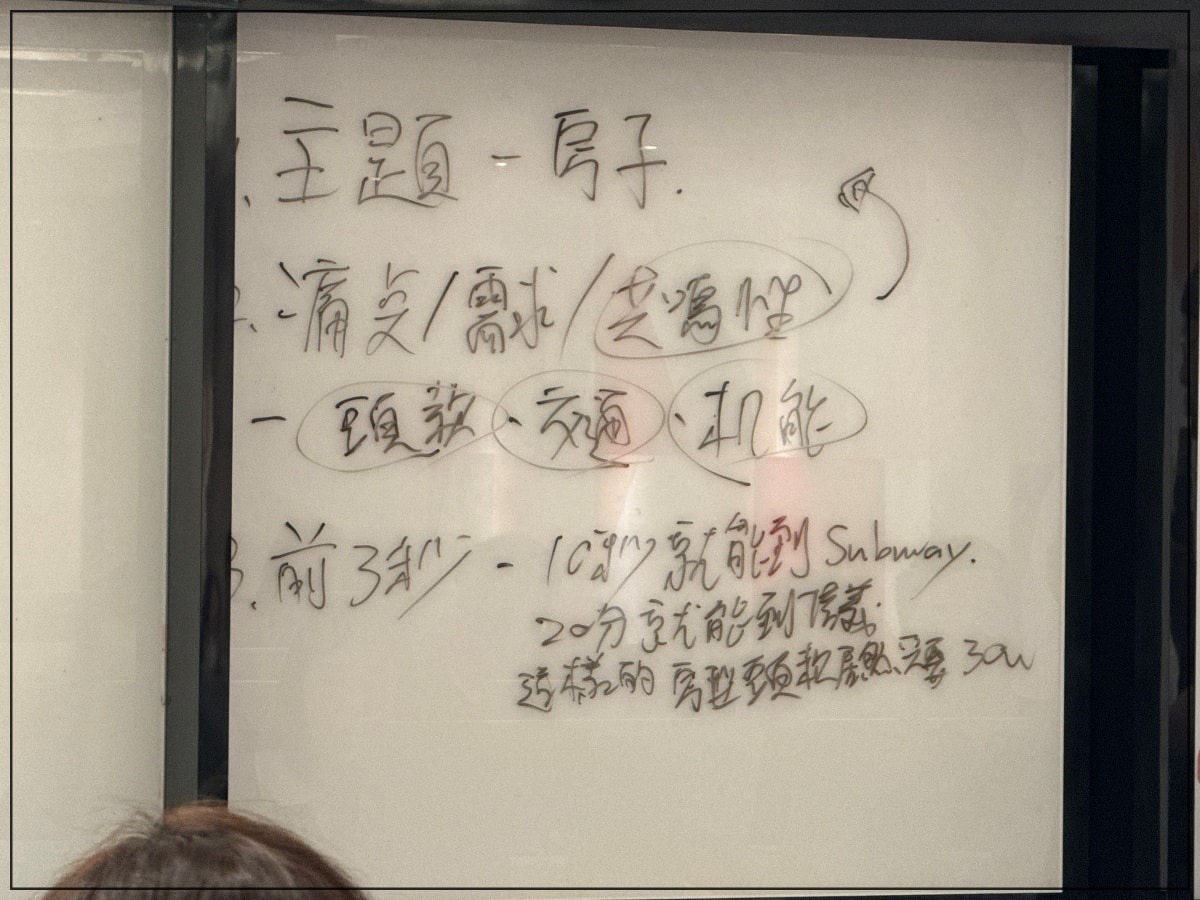 1. 主題 - 房子.
2. 痛点/需求/共鳴性
- 頭款、交通、机能
3. 前3秒 - 10秒就能到 Subway.
20分就能到信義.
這樣的房型頭款居然只要 30w